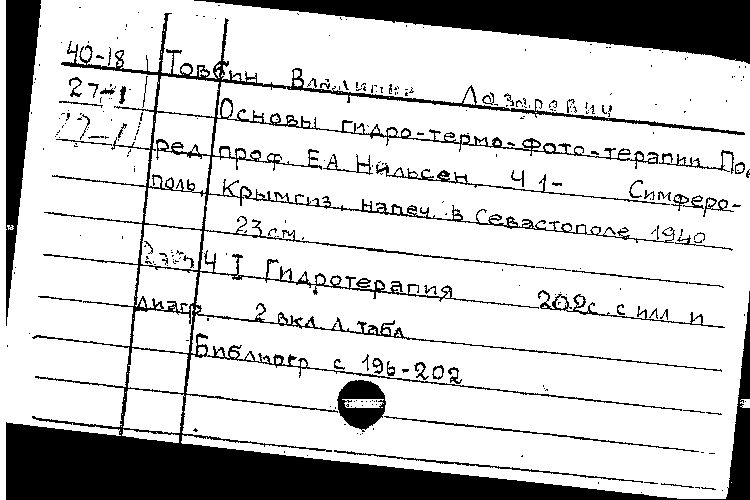 40-18 Товбин, Владимир Лазаревич
27-1
Основы гидро-термо-фото-терапии По
27-11
ред проф. Е.А Нильсен. Ч 1- Симферо-
поль, Крымгиз, напеч. в Севастополе, 1940
23см.
Ч I Гидротерапия 202с. с илл и
диагр. 2 вкл л. табл
Библиогр с 196-202